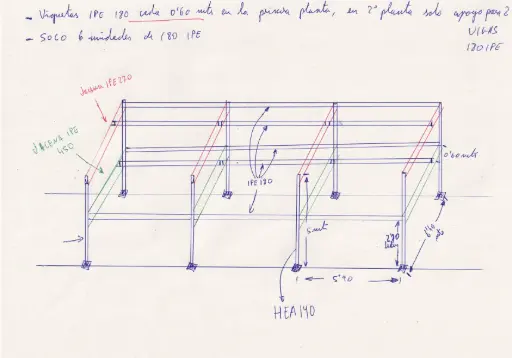 - Viguetas IPE 180 cada 0'60 mts en la primera planta, en 2ª planta solo apoyo para 2
VIGAS
180 IPE
- SOLO 6 unidades de 180 IPE
Jacena IPE 220
JACENA IPE
450
0'60 mts
IPE 180
5 mt
5'40
HEA 140